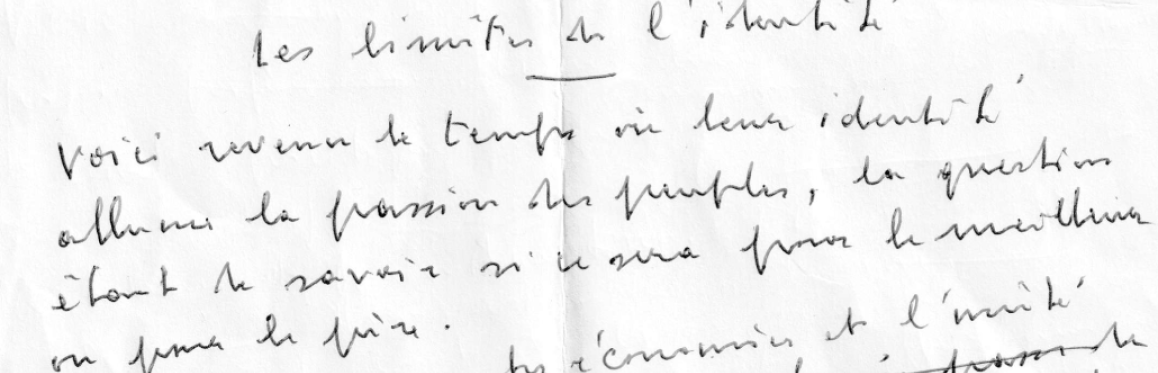 Les limites de l'identité
Voici revenu le temps où leur identité
allume la passion des peuples, la question
étant de savoir si ce sera pour le meilleur
ou pour le pire.
des économies et l'unité
passe de